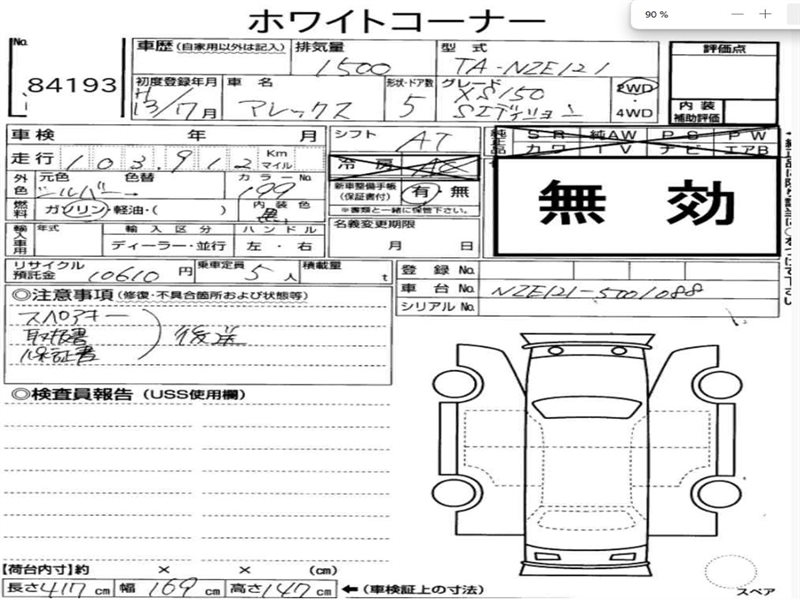 ホワイトコーナー
90 %
No.
84193
車歴 (自家用以外は記入)
排気量
1500
型式
TA-NZE121
評価点
初度登録年月
H13/7月
車名
アレックス
形状・ドア数
5
グレード
XS150
Sエディション
2WD
4WD
内装
補助評価
車検 年 月
シフト
AT
純正品
SR 純AW PS PW
カワ TV ナビ エアB
走行 103,912 Km マイル
冷房 AC
無効
外色
元色 色替
シルバー
カラーNo.
199
新車整備手帳
(保証書付)
有・無
※書類と一緒に保管下さい。
燃料
ガソリン・軽油・( )
内装色
黒
輸入車用
年式
輸入区分
ハンドル
ディーラー・並行
左・右
名義変更期限
月 日
リサイクル
預託金
10610 円
乗車定員
5人
積載量
t
登録No.
車台No.
NZE121-5001088
シリアルNo.
◎注意事項(修復・不具合個所および状態等)
スペアキー
取扱書
保証書
後送
◎検査員報告(USS使用欄)
【荷台内寸】約 × × (cm)
長さ417cm 幅169cm 高さ147cm ←(車検証上の寸法)
スペア